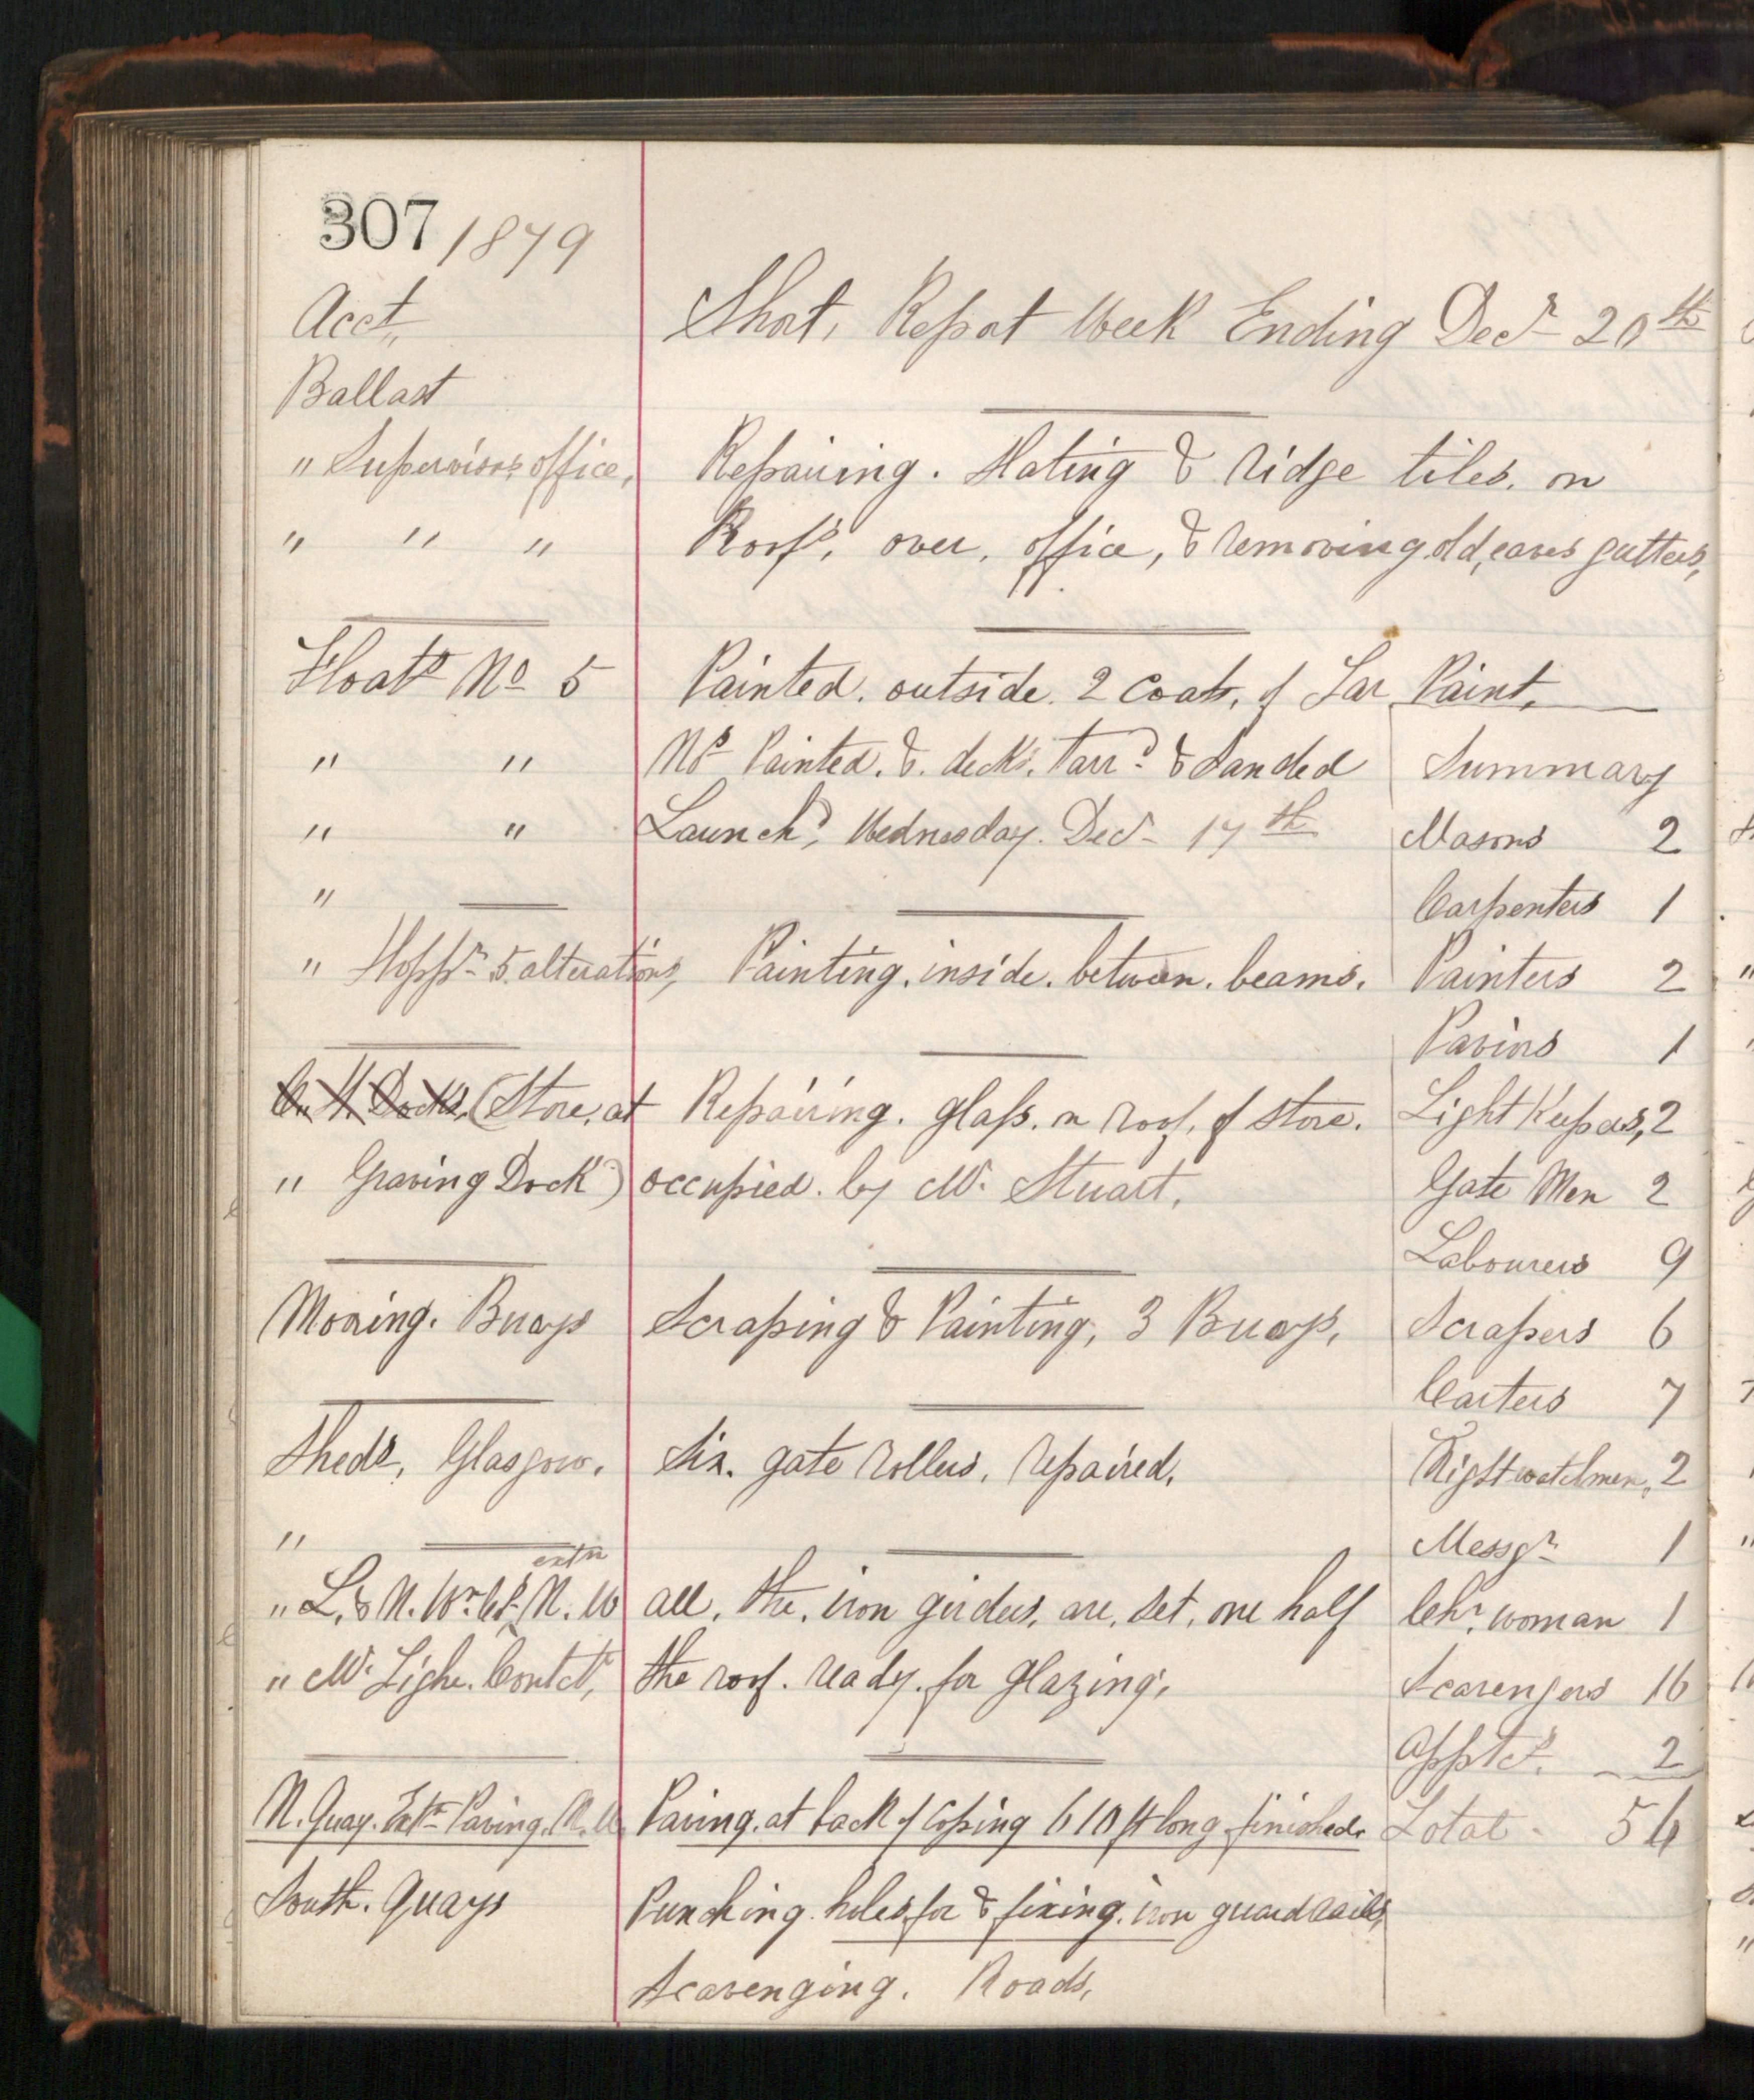 307 1879
Acct, Short, Report Week Ending Decr 20th
Ballast
" Supervisors office, Repairing. Slating & ridge tiles. on
" " " Roofs, over, office, & removing old, eaves gutters,
Floats No 5 Painted. outside. 2 Coats, of Tar Paint,
" " Nos Painted. &. decks. Tarrd & Sanded Summary
" " Launchd, Wednesday. Decr 17th Masons 2
" Carpenters 1
" Hoppr 5 alterations, Painting. inside. between. beams. Painters 2
Paviors 1
C. H. Docks. (Store, at Repairing. glass. on roof, of store. Light Keepers, 2
" Graving Dock) occupied. by Mr Stuart, Gate Men 2
Labourers 9
Mooring. Buoys Scraping & Painting, 3 Buoys, Scrapers 6
Carters 7
Sheds, Glasgow. Six. gate rollers, repaired, Nightwatchmen, 2
" Messgr 1
" L. & N. Wn Co's extn N. W all, the, iron girders, are, set, one half Chr. woman 1
" Mr Contct, the roof. ready. for glazing, Scavengers 16
Apptcs. 2
N. Quay. Extn Paving. N. W. Paving. at back of Coping 610 ft long finished. Total 56
South. Quays Punching. holes for & fixing. iron guard rails,
Scavenging. Roads,